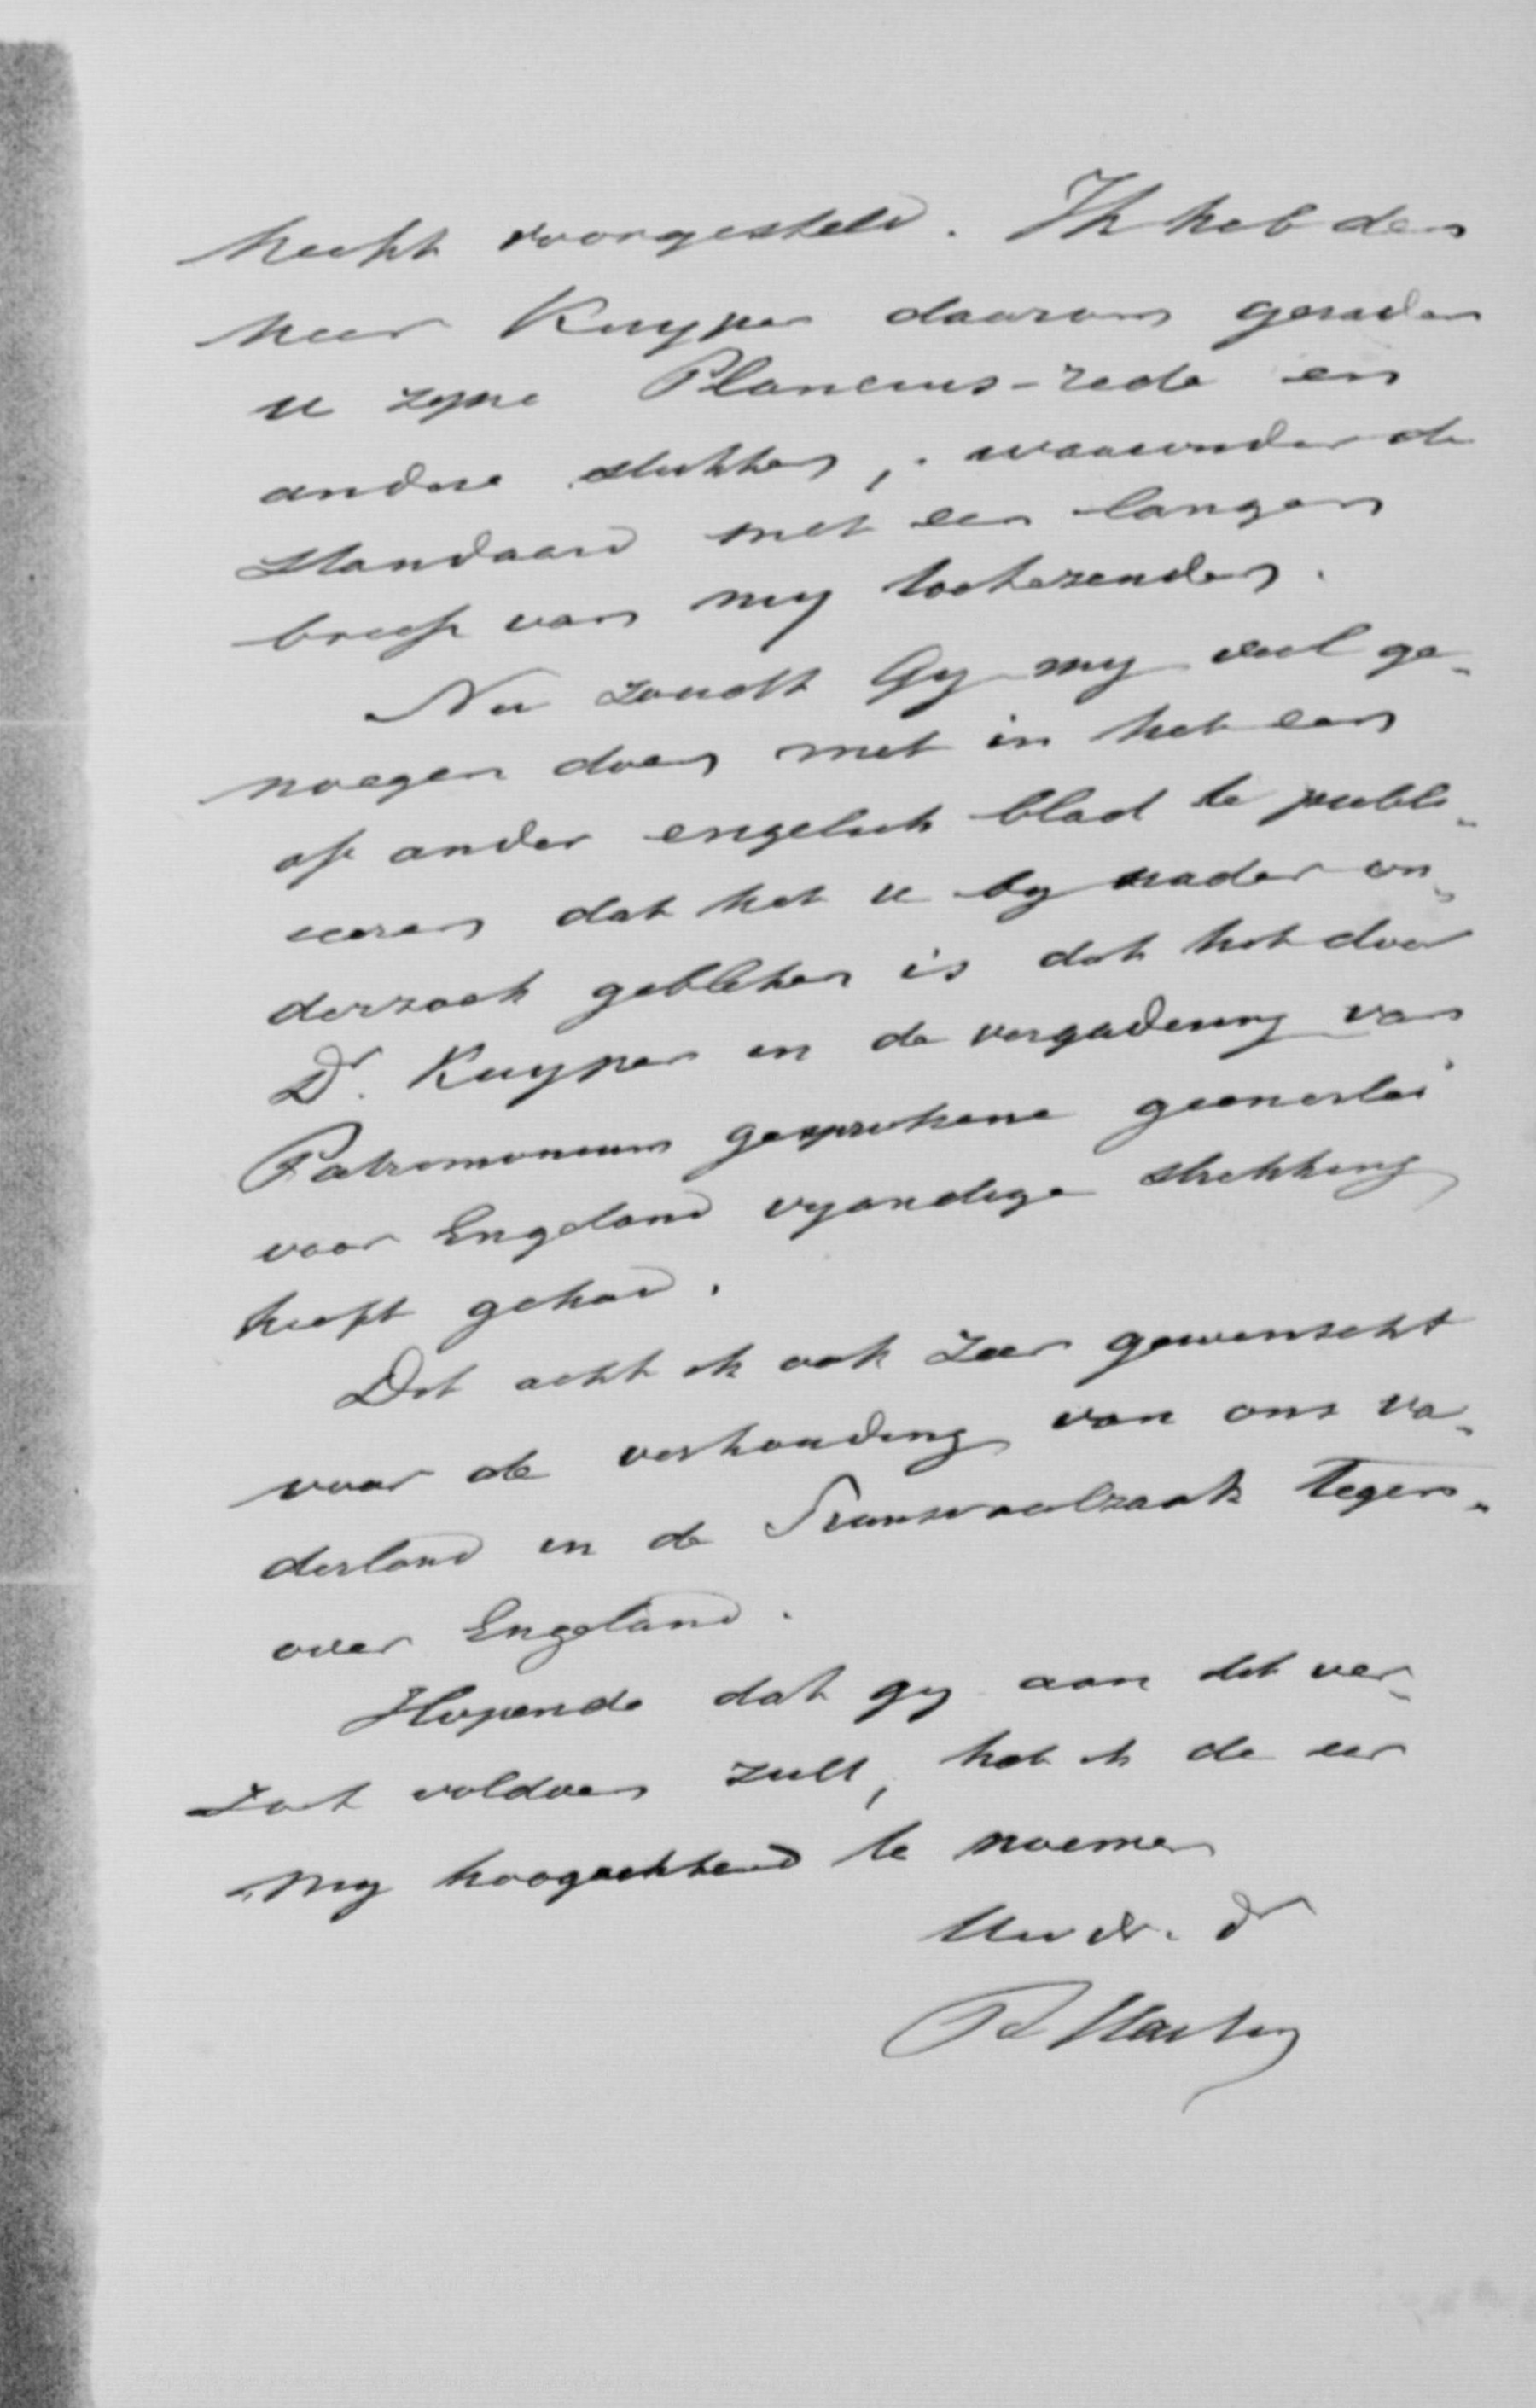 heeft voorgesteld. Ik heb den
heer Kuyper daarom geraden
u zyne Plancius-rede en
andere stukken, waaronder de
Standaard met een langen
brief van my toetezenden.
Nu zoudt Gy my veel ge-
noegen doen met in het een
of ander engelsch blad te publi-
ceeren dat het u by nader on-
derzoek gebleken is dat het door
Dr. Kuyper in de vergadering van
Patrimonium gesprokene geenerlei
voor Engeland vyandige strekking
heeft gehad.
Dit acht ik ook zeer gewenscht
voor de verhouding van ons va-
derland in de Transvaalzaak tegen-
over Engeland.
Hopende dat gy aan dit ver-
zoek voldoen zult, heb ik de eer
my hoogachtend te noemen
Uw dr. dr
P Harting